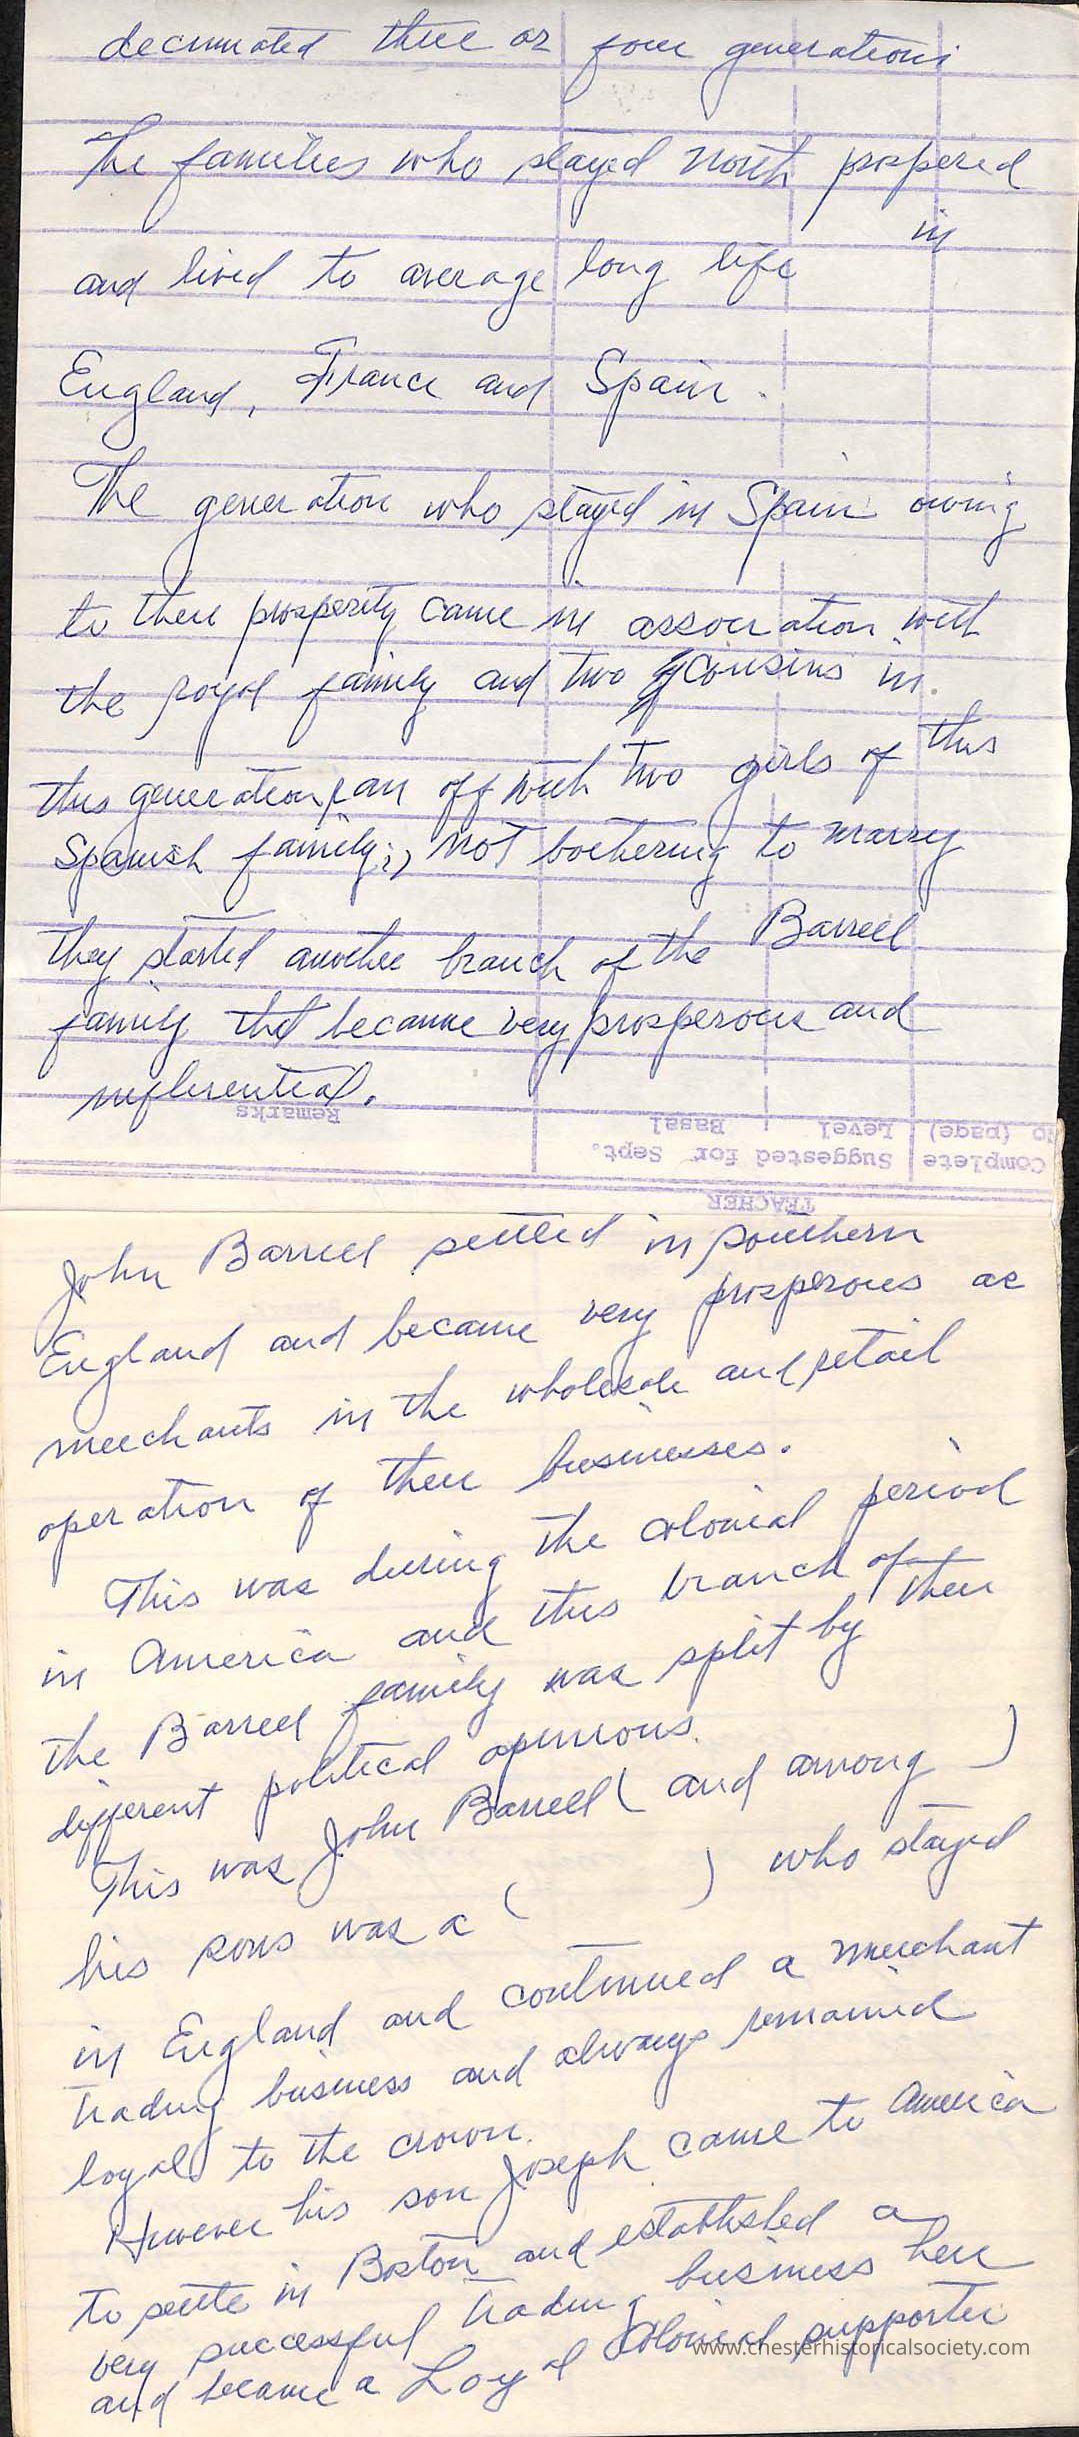 decimated three or four generations
The families who stayed North prospered
in
and lived to average long life
England, France and Spain.
The generation who stayed in Spain owing
to their prosperity came in association with
the royal family and two cousins in
this generation ran off with two girls of this
Spanish family, not bothering to marry
they started another branch of the Barrell
family that became very prosperous and
influential.
Remarks
Basal Level to (page)
Suggested for Sept. Complete
TEACHER
John Barrell settled in southern
England and became very prosperous as
merchants in the wholesale and retail
operation of their businesses.
This was during the colonial period
in America and this branch of
the Barrell family was split by their
different political opinions.
This was John Barrell ( and among )
his sons was a ( ) who stayed
in England and continued a merchant
trading business and always remained
loyal to the crown.
However his son Joseph came to America
to settle in Boston and established a
very successful trading business here
and became a Loyal Colonial supporter
www.chesterhistoricalsociety.com